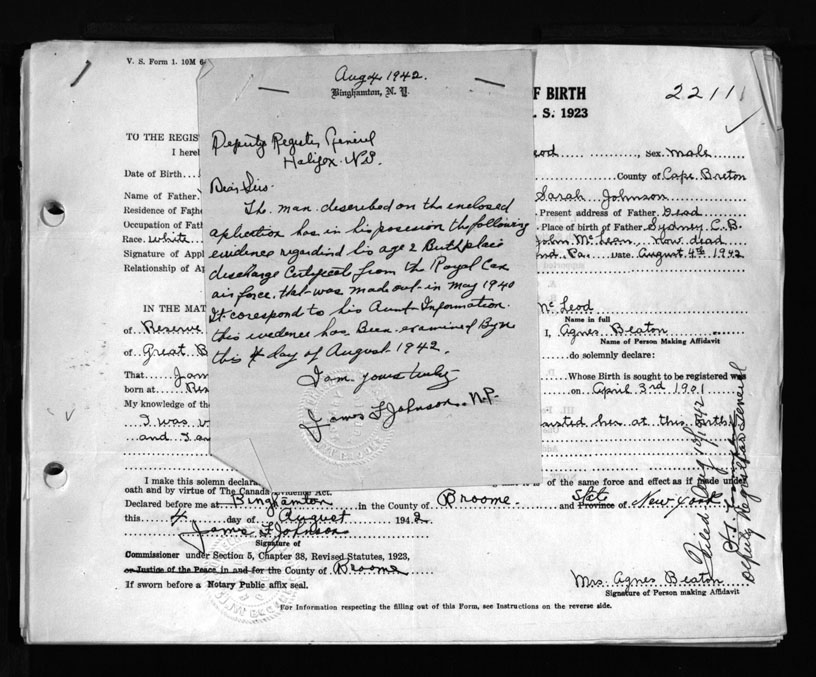 V. S. Form 1. 10M 6-
F BIRTH
. S. 1923
2211
TO THE REGIS
I hereb
eod , Sex. male
Date of Birth
County of Cape Breton
Name of Father
Sarah Johnson
Residence of Fathe
Present address of Father. Dead
Occupation of Fath
Place of birth of Father Sydney C.B.
Race. White
John McLean, Now dead
Signature of Appl
nd. Pa. Date. August 4th 1942
Relationship of Ap
IN THE MAT
Mc Leod
Name in full
of Reserve
I, Agnes Beaton
Name of Person Making Affidavit
of Great B
do solemnly declare:
That Jam
Whose Birth is sought to be registered was
born at Res
on April 3rd 1901
My knowledge of the
I was v
isted her at this birth
and I a
I make this solemn declara
is of the same force and effect as if made under
oath and by virtue of The Canada Evidence Act.
Declared before me at Binghamton in the County of Broome and Province of State New York
this 4 day of August 1942
James F Johnson
Signature of
Commissioner under Section 5, Chapter 38, Revised Statutes, 1923,
or Justice of the Peace in and for the County of Broome
If sworn before a Notary Public affix seal.
Mrs. Agnes Beaton
Signature of Person making Affidavit
For Information respecting the filling out of this Form, see Instructions on the reverse side.
Filed. Aug 10/1942
Deputy Registrar General
Aug 4, 1942.
Binghamton, N. Y.
Deputy Register General
Halifax. N.S.
Dear Sirs.
The man described on the enclosed
aplication has in his posesion the following
evidence regardind his age & Birthplace
discharge Certificate from the Royal Can
air force, that was made out in May 1940
It corespond to his Aunt Information.
this evedence has been examined By me
this 4 day of August 1942.
I am yours truly
James F Johnson. N.P.